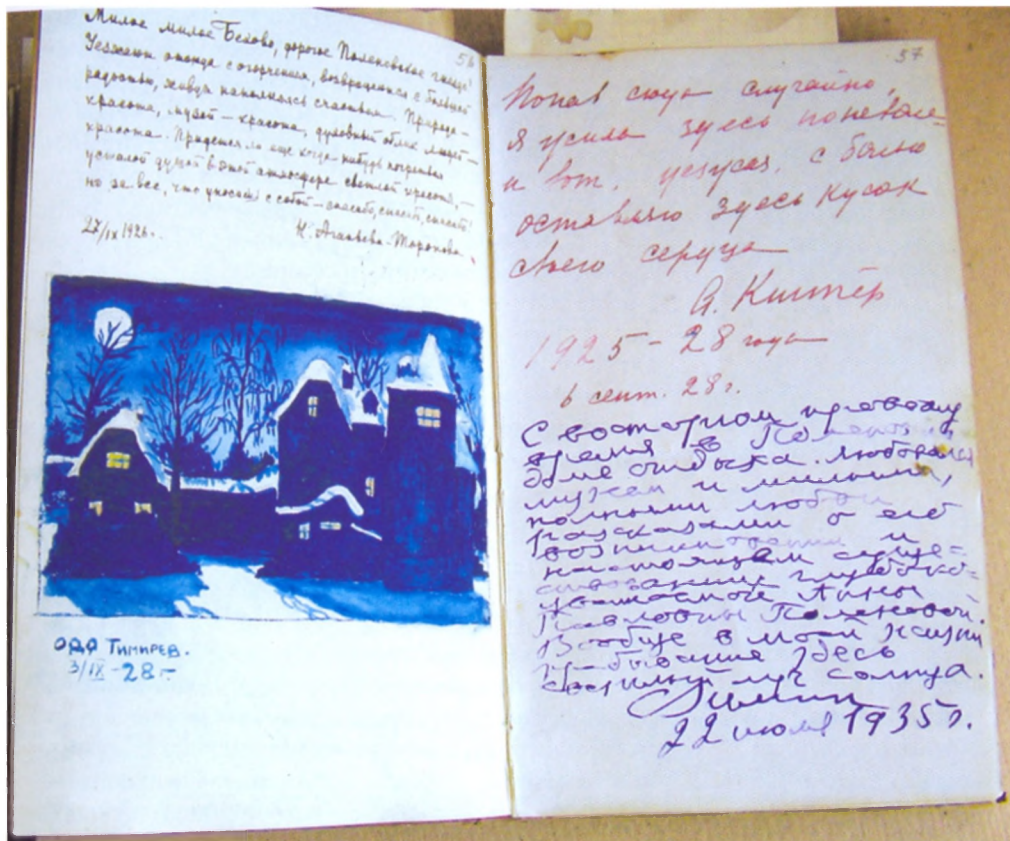 56
Милое милое Бехово, дорогое Поленовское гнездо!
Уезжаем отсюда с огорчением, возвращаемся с большой
радостью, живя наполняясь счастьем. Природа —
красота, людей — красота, духовный облик людей —
красота. Придется ли еще когда нибудь
усталой душой в этой атмосфере светлой красоты, —
но за все, что уносишь с собой — спасибо, спасибо, спасибо!
27/IX 1926 г.
ОДО ТИМИРЕВ.
3/IX - 28 г.
57
Попав сюда случайно,
я жила здесь поневоле
и вот, уезжая, с болью
оставляю здесь кусок
своего сердца
1925 - 28 года
6 сент. 28 г.
С восторгом провожу
время в Поленовском
доме отдыха. Любовался
музеем и милыми,
полными любви
рассказами о его
возникновении и
настоящем суще=
ствовании глубоко=
уважаемой Анны
Павловны Поленовой.
Вообще в моей жизни
пребывание здесь
луч солнца.
22 июля 1935 г.